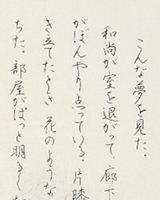 こんな夢を見た。
和尚が室を退がって、廊下
がぼんやり点っている。片膝
き立てたとき、花のような
ちた。部屋がぱっと明るく